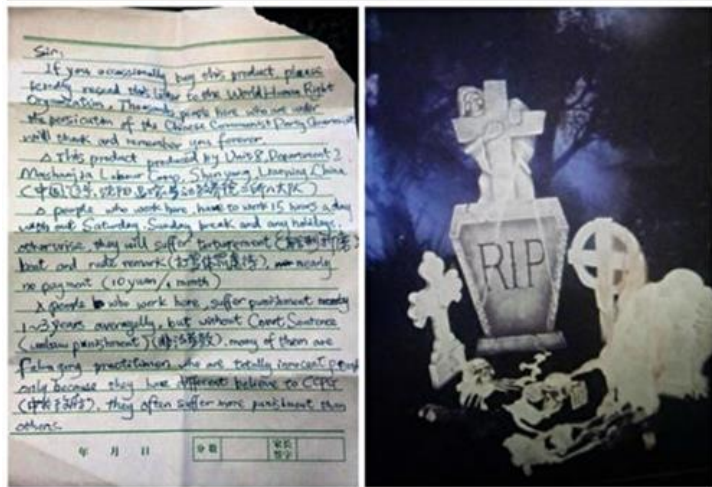 Sir:
If you occassionally buy this product, please
kindly resend this letter to the World Human Right
Organization. Thousands people here who are under
the persicution of the Chinese Communist Party Government
will thank and remember you forever.
△ This product produced by Unit 8, Department 2
Mashanjia Labour Camp, Shenyang, Liaoning, China
(中国辽宁, 沈阳
△ people who work here, have to work 15 hours a day
with out Saturday, Sunday break and any holidays,
otherwise, they will suffer torturement
beat and rude remark nearly
no payment (10 yuan/1 month)
△ people who work here, suffer punishment nearly
1~3 years averagelly, but without Court Sentence
(unlaw punishment) (非法劳教), many of them are
Falun gong practitioner, who are totally innocent people
only because they have different believe to CCPG
they often suffer more punishment than
others.
年 月 日 分数 家长签字
RIP